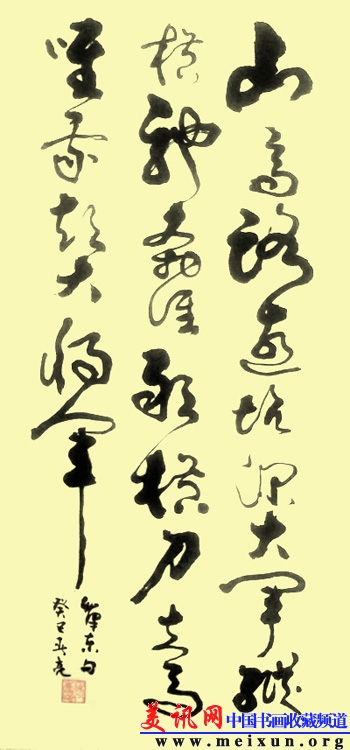 山高路遠坑深大軍縱
横馳奔誰敢横刀立馬
唯我彭大将軍
澤东句
癸巳 亮
美讯网 中国书画收藏频道
www.meixun.org